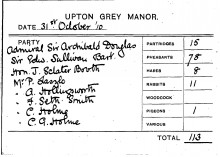 UPTON GREY MANOR.
DATE 31st October 10
PARTY
Admiral Sir Archibald Douglas
Sir Edw. Sullivan Bart
Hon. J. Sclater Booth
Mr P. Laszlo
" A. Hollingworth
" F. Seth Smith
" C. Holme
" C. G. Holme
PARTRIDGES 15
PHEASANTS 78
HARES 8
RABBITS 11
WOODCOCK
PIGEONS 1
VARIOUS
TOTAL 113